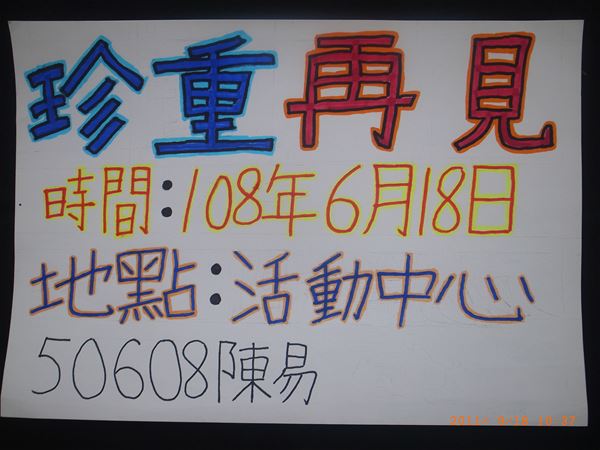 珍重再見
時間:108年6月18日
地點:活動中心
50608陳易